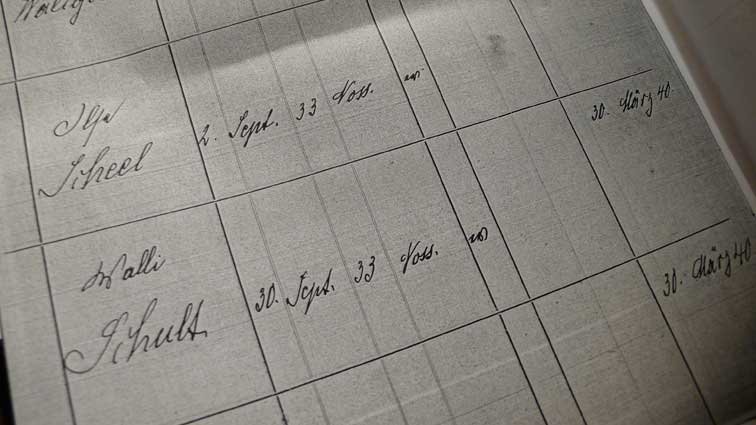 Ilse
Scheel
2. Sept. 33 Voss.
30. März 40.
Walli
Schult
30. Sept. 33 Voss.
30. März 40.